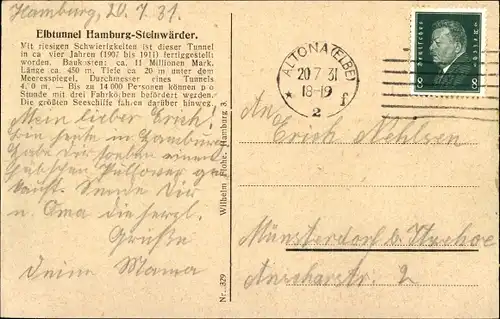 Hamburg, 20.7.31.
Elbtunnel Hamburg-Steinwärder.
Mit riesigen Schwierigkeiten ist dieser Tunnel
in ca vier Jahren (1907 bis 1911) fertiggestellt
worden. Baukosten: ca. 11 Millionen Mark,
Länge ca. 450 m, Tiefe ca 20 m unter dem
Meeresspiegel, Durchmesser eines Tunnels
4.0 m. — Bis zu 14000 Personen können pro
Stunde mit drei Fahrkörben befördert werden.
Die größten Seeschiffe fahren darüber hinweg.
Mein lieber Erich!
Bin heute in Hamburg
habe Dir soeben einen
hübschen Pullover ge
kauft. Sende Dir
u. Oma die herzl.
Grüße
Deine Mama
Wilhelm Flohr, Hamburg 3.
Nr. 329
ALTONA (ELBE)
20 7.31
18-19
* 2 f
Deutsches Reich
8 8
An
Erich Nehlsen
Münsterdorf b Itzehoe
2